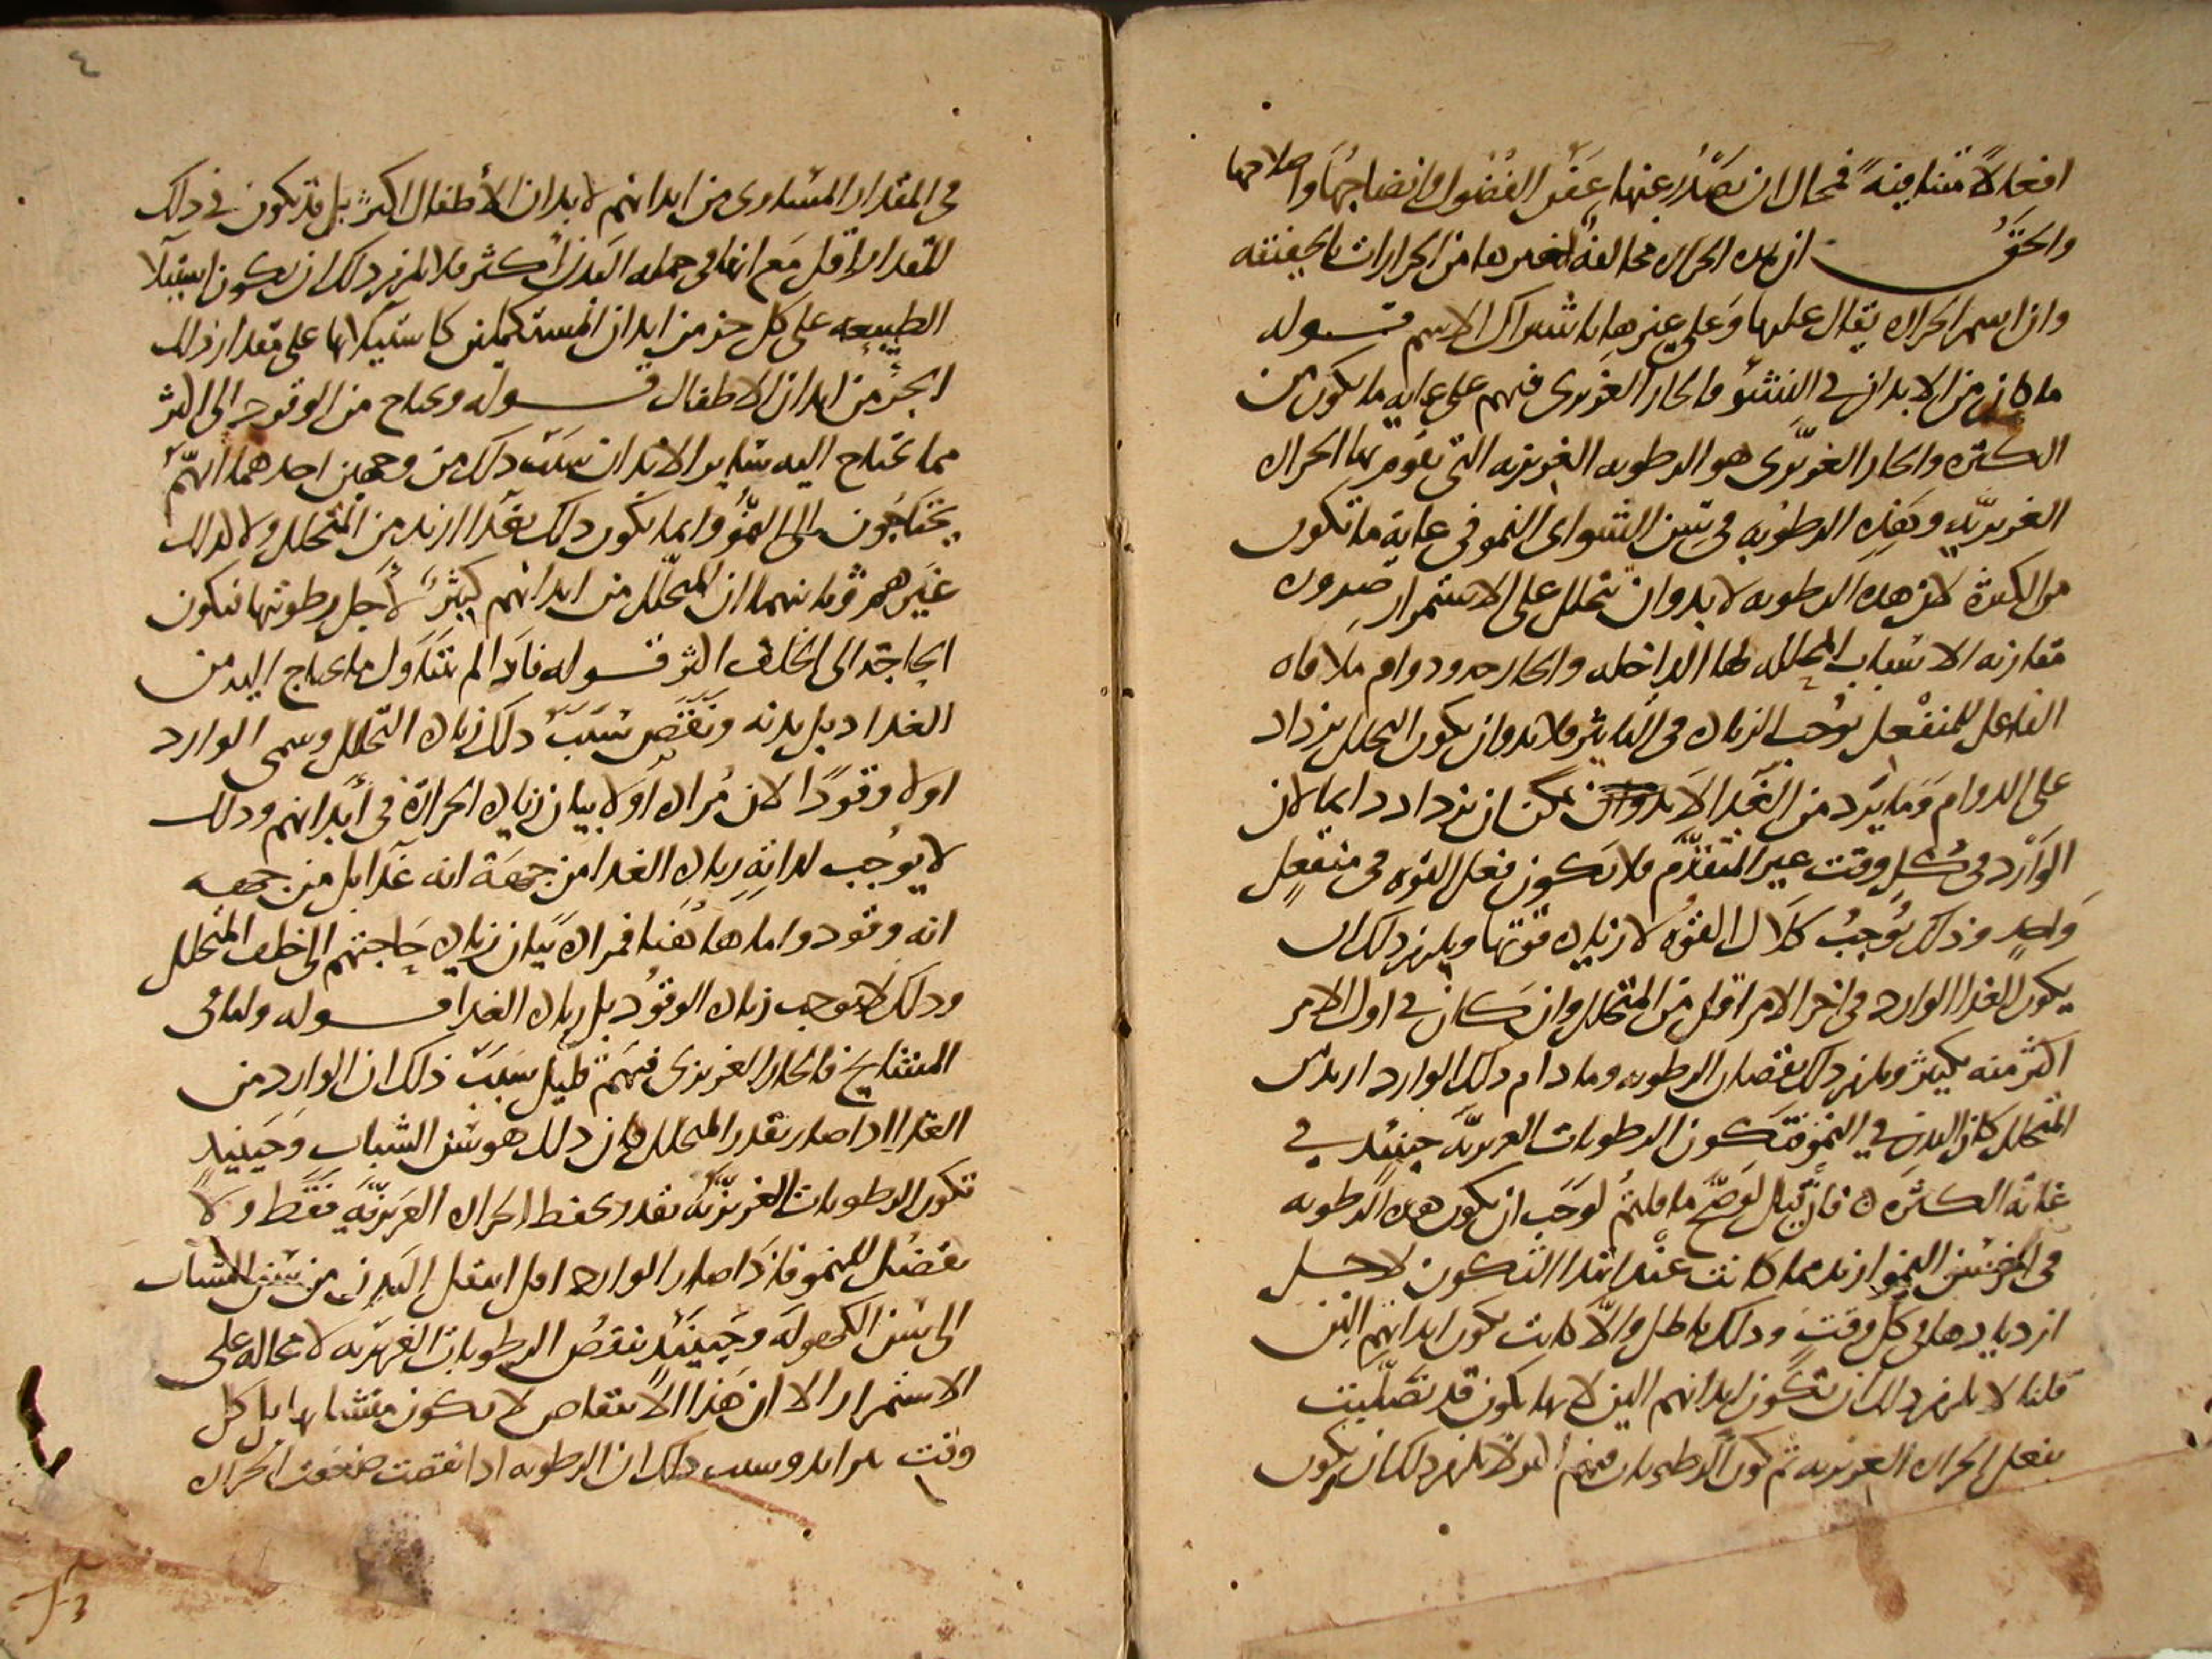 افعالاً متنافية فمحال ان تصدر عنها عفن الفضول وانضاجها واصلاحها
والحق ان هذه الحراره مخالفة لغيرها من الحرارات بالحقيقته
وان اسم الحراره يقال عليها وعلى غيرها باشتراك الاسم قــوله
ما كان من الابدان في النشؤ فالحار الغريزى فيهم على غايه ما يكون من
الكثره والحار الغريزى هو الرطوبه الغريزيه التى تقوم بها الحراره
الغريزيه وهذه الرطوبه في سن النشو اى النمو في غاية ما تكون
من الكثرة لان هذه الرطوبه لا بد وان تتحلل على الاستمرار ضروره
مقارنه الاسباب المحلله لها الداخله والخارجه ودوام ملاقاه
الفاعل للمنفعل يوجب الزياده في التاثير فلا بد وان يكون التحلل يزداد
على الدوام وما يرد من الغذا لا يمكن ان يزداد دايما لان
الوارد في كل وقت غير المتقدم فلا يكون فعل القوه في منفعل
واحد وذلك يوجب كلال القوه لا زياده قوتها ويلزم ذلك ان
يكون الغذا الوارد في اخر الامر اقل من المتحلل وان كان في اول الامر
اكثر منه بكثير ويلزم ذلك نقصان الرطوبه وما دام ذلك الوارد ازيد من
المتحلل كان البدن في النمو فتكون الرطوبات الغريزيه حينئذ في
غاية الكثره فان قيل لو صح ما قلتم لوجب ان يكون هذه الرطوبه
في اخر سن النمو ازيد مما كانت عند ابتدا التكون لاجل
ازديادها في كل وقت وذلك باطل والا كانت تكون ابدانهم الين
قلنا لا يلزم ذلك ان تكون ابدانهم الين لانها يكون قد تصلبت
بفعل الحراره الغريزيه ثم كون الرطوبات فيهم اكثر لا يلزم ذلك ان يكون
٤
في المقدار المساوى من ابدانهم لابدان الأطفال اكثر بل قد يكون في ذلك
المقدار اقل مع انها في جمله البدن أكثر فلا يلزم ذلك ان يكون استيلا
الطبيعه على كل جز من ابدان المستكملين كاستيلائها على مقدار ذلك
الجز من ابدان الاطفال قــوله ويحتاج من الوقود الى اكثر
مما يحتاج اليه ساير الابدان سبب ذلك من وجهين احدهما انهم
يحتاجون الى النمو وانما يكون ذلك بغذا ازيد من المتحلل ولا كذلك
غيرهم وثانيهما ان المتحلل من ابدانهم كثير لأجل رطوبتها فتكون
الحاجة الى الخلف اكثر قــوله فاذا لم يتناول ما يحتاج اليه من
الغذا ذبل بدنه ونقص سبب ذلك زياده التحلل وسمى الوارد
اولا وقودًا لان مراده اولا بيان زياده الحرارة في أبدانهم وذلك
لا يوجب لذاته زياده الغذا من جهة انه غذا بل من جهه
انه وقود واما هاهنا فمراده بيان زياده حاجتهم الى خلف المتحلل
وذلك لا يوجب زياده الوقود بل زياده الغذا قــوله واما في
المشايخ فالحار الغريزى فيهم قليل سبب ذلك ان الوارد من
الغذا اذا صار بقدر المتحلل كان ذلك هو سن الشباب وحينيذ
تكون الرطوبات الغريزيه بقدر يحفظ الحراره الغريزيه فقط ولا
يفضل للنمو فاذا صار الوارد اقل انتقل البدن من سن الشباب
الى سن الكهولة وحينيذ تنقص الرطوبات الغريزيه لا محاله على
الاستمرار الا ان هذا الانتقاص لا يكون متشابها بل كل
وقت يتزايد وسبب ذلك ان الرطوبه اذا نقصت ضعفت الحراره